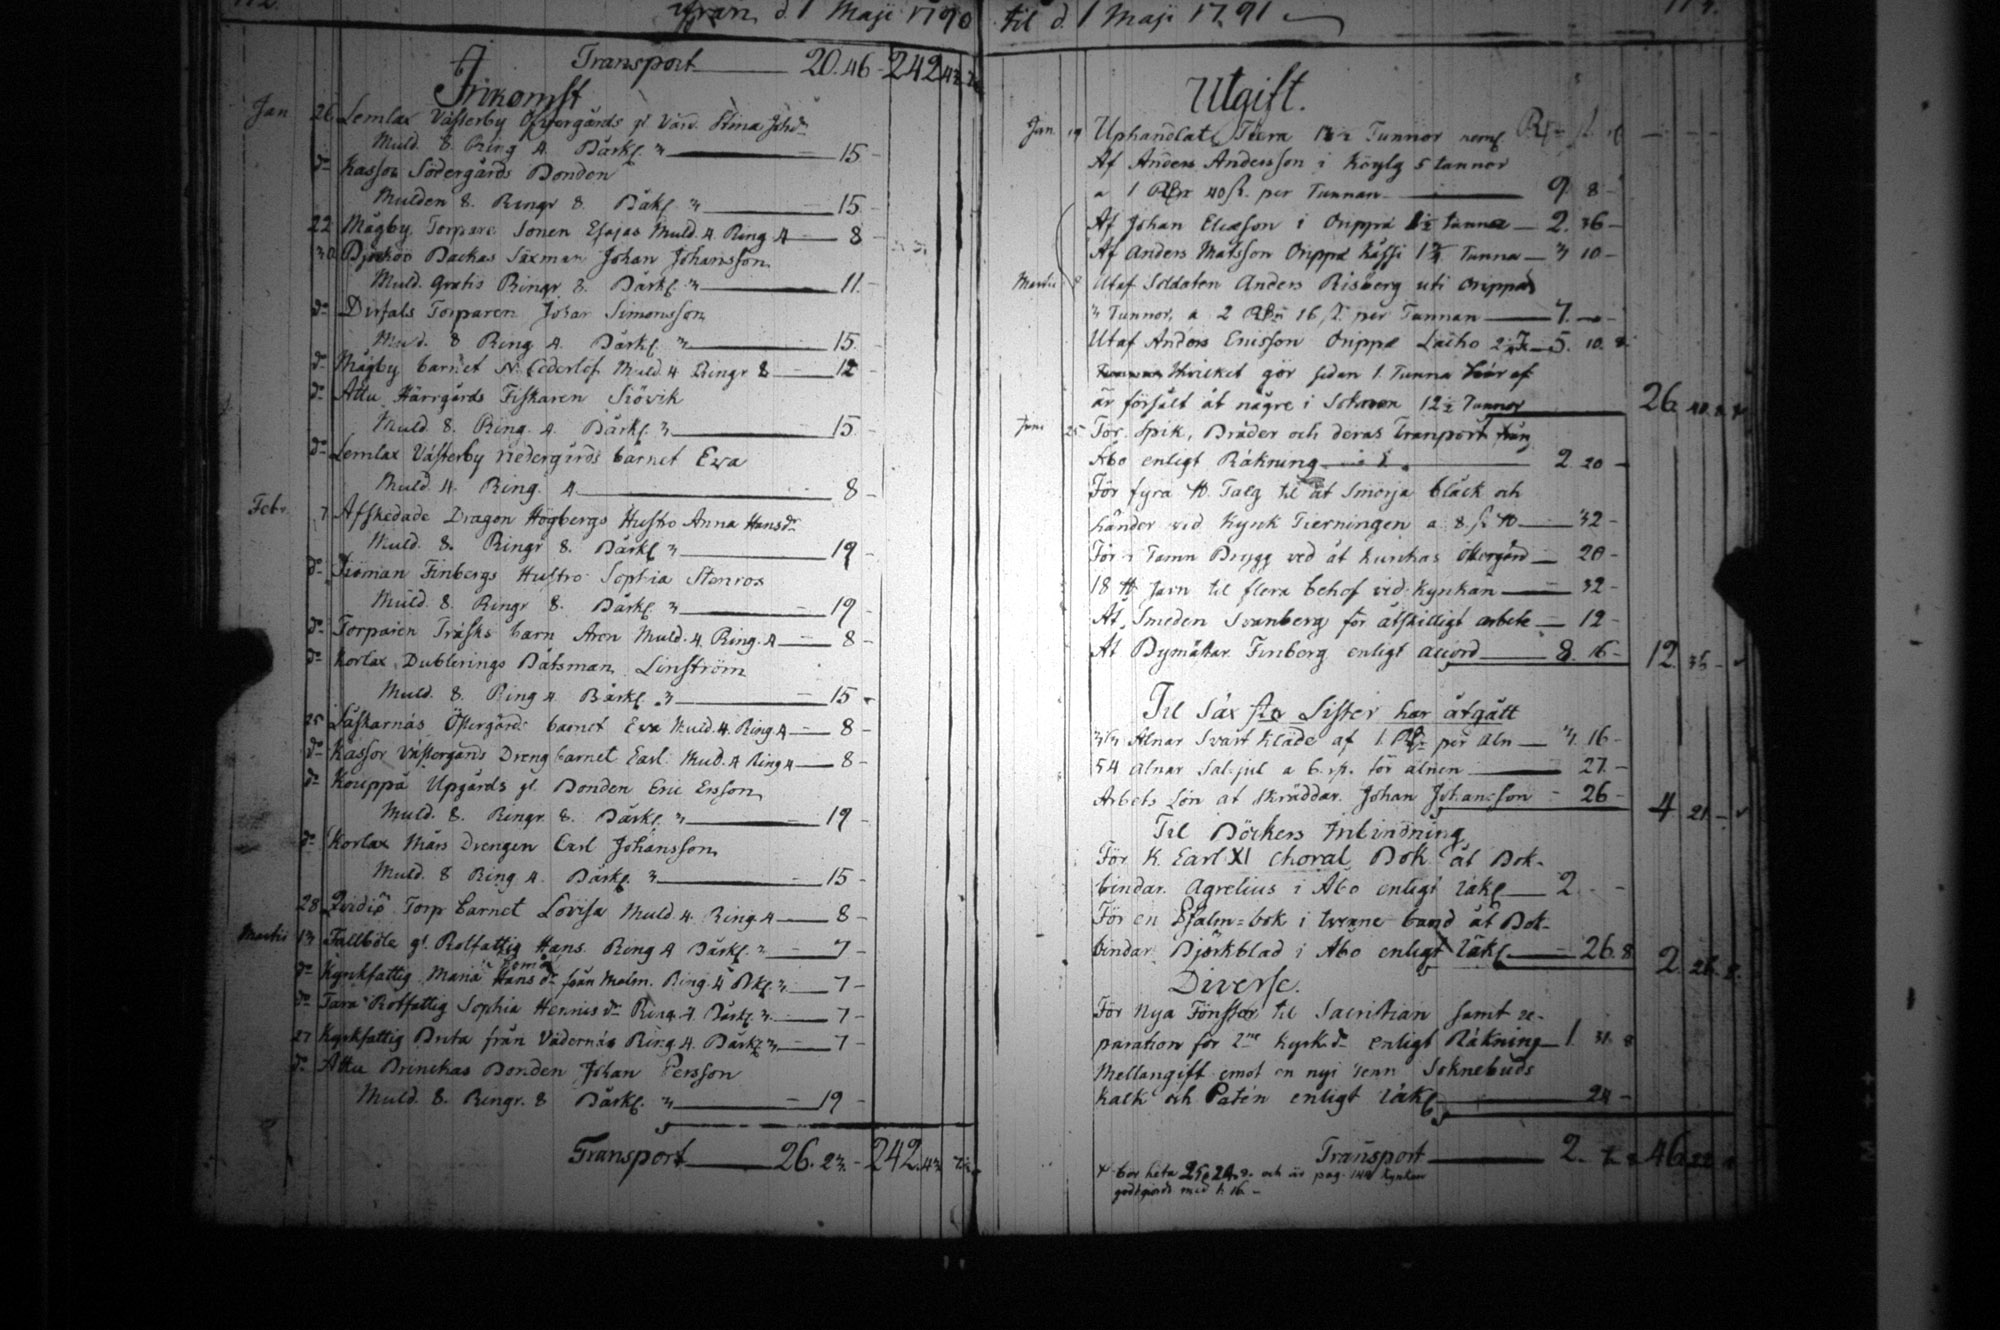 ifrån d. 1 Maji 1790
Transport 20. 46 242
Inkomst
Jan. 26 Lemlax Västerby Öfvergårds gl. Värd. Stina Joh:dr
Muld. 8 Ring 4. Bårkl. 3 15
do Kassor Södergårds Bonden
Mulden 8. Ringr 8. Båkl. 3 15
Mågby Torpare Sonen Esajas Muld. 4. Ring 4 8
30 Backas Säxman Johan Johansson
Muld. gratis Ringr 8. Bårkl. 3 11
do Dirfals Torparen Johan Simonsson
Muld. 8 Ring 4. Bårkl. 3 15
do Mågby barnet N. Cederlöf Muld. 4 Ringr 8 12
do Attu Härrgårds Fiskaren Siövik
Muld. 8. Ring. 4. Bårkl. 3 15
do Lemlax Västerby Nedergårds barnet Eva
Muld. 4. Ring. 4 8
Febr. 7 Afskedade Dragon Högbergs Hustro Anna Hansdr
Muld. 8. Ringr 8. Bårkl. 3 19
do Finbergs Hustro Sophia Stenros
Muld. 8. Ringr 8. Bårkl. 3 19
do Torparen Träsks barn Aron Muld. 4. Ring. 4 8
do Korlax Dublerings Båtsman Linström
Muld. 8. Ring 4 Bårkl. 3 15
25 Läskarnäs Östergårds barnet Eva Muld. 4. Ring. 4 8
do Kassor Västergårds Dreng barnet Carl Muld. 4 Ring 4 8
do Kouppå Upgårds gl. Bonden Eric Ersson
Muld. 8. Ringr. 8. Bårkl. 3 19
do Korlax Mårs Drengen Carl Johansson
Muld. 8 Ring 4. Bårkl. 3 15
28 Qvidiö Torp barnet Lovisa Muld. 4. Ring. 4 8
Martii 13 Fallböle gl. Rotfattig Hans. Ring 4 Bårkl. 3 7
do Kyrkfattig Maria Hansdr från Malm. Ring. 4 Bkl. 3 7
do Tara Rotfattig Sophia Henricsdr Ring. 4. Bårkl. 3 7
27 Kyrkfattig Brita från Vädernäs Ring 4. Bårkl 3 7
do Attu Brinckas Bonden Johan Persson
Muld. 8. Ringr. 8 Bårkl. 3 19
Transport 26. 23. 242. 43
til d. 1 Maji 1791
Utgift.
Jan. 19 Uphandlat Tiera Tunnor neml.
Af Anders Andersson i Köylg 5 tunnor
a 1 Rdr 40 s. per Tunnan 9 8
Af Johan Eliæson i Crippa 1½ tunna 2. 36
Af Anders Matsson Crippa Kåssi Tunna 3 10
Martii 8 Utaf Soldaten Anders Risberg uti Crippa
3 Tunnor, a 2 Rdr 16 s. per Tunnan 7.
Utaf Anders Ericsson Crippa Laiho 5. 10. 8
Hvilket gör sedan 1. Tunna häraf
är försålt åt någre i Soknen 12½ Tunnor 26.
25 För Spik, Bräder och deras transport från
Åbo enligt Räkning 2. 20
För fyra ℔. Talg til at Smörja bläck och
händer vid Kyrk Tierningen a 8. s ℔ 32
20
18 ℔ Järn til flera behof vid Kyrkan 32
At Smeden Svanberg för åtskilligt arbete 12
At Bymästar Finberg enligt accord 8. 16 12. 36
Til Säx Lister har åtgått
3⅓ Alnar Svart Kläde af 1. Rdr per Aln 3. 16
54 alnar a 6. rs. för alnen 27
Arbets Lön åt Skräddar. Johan Johansson 26 4 21
Til Böckers Inbindning
För K. Carl XI Choral Bok åt Bok-
bindar. Agrelius i Åbo enligt räkl 2
För en Psalm-bok i tvenne band åt Bok-
bindar. Björkblad i Åbo enligt räkl 26. 8 2. 26. 8
Diverse.
För Nya Fönster til Sacristian samt re-
paration för 2ne enligt Räkning 1. 31. 8
Mellangift emot en nyi tenn Soknebuds
Kalk och Paten enligt räkl 24
Transport 2. 7. 8 46. 22
bör heta 25. 24. 8. och är pag. 144 Kyrkan
godtgjordt med 1. 16.